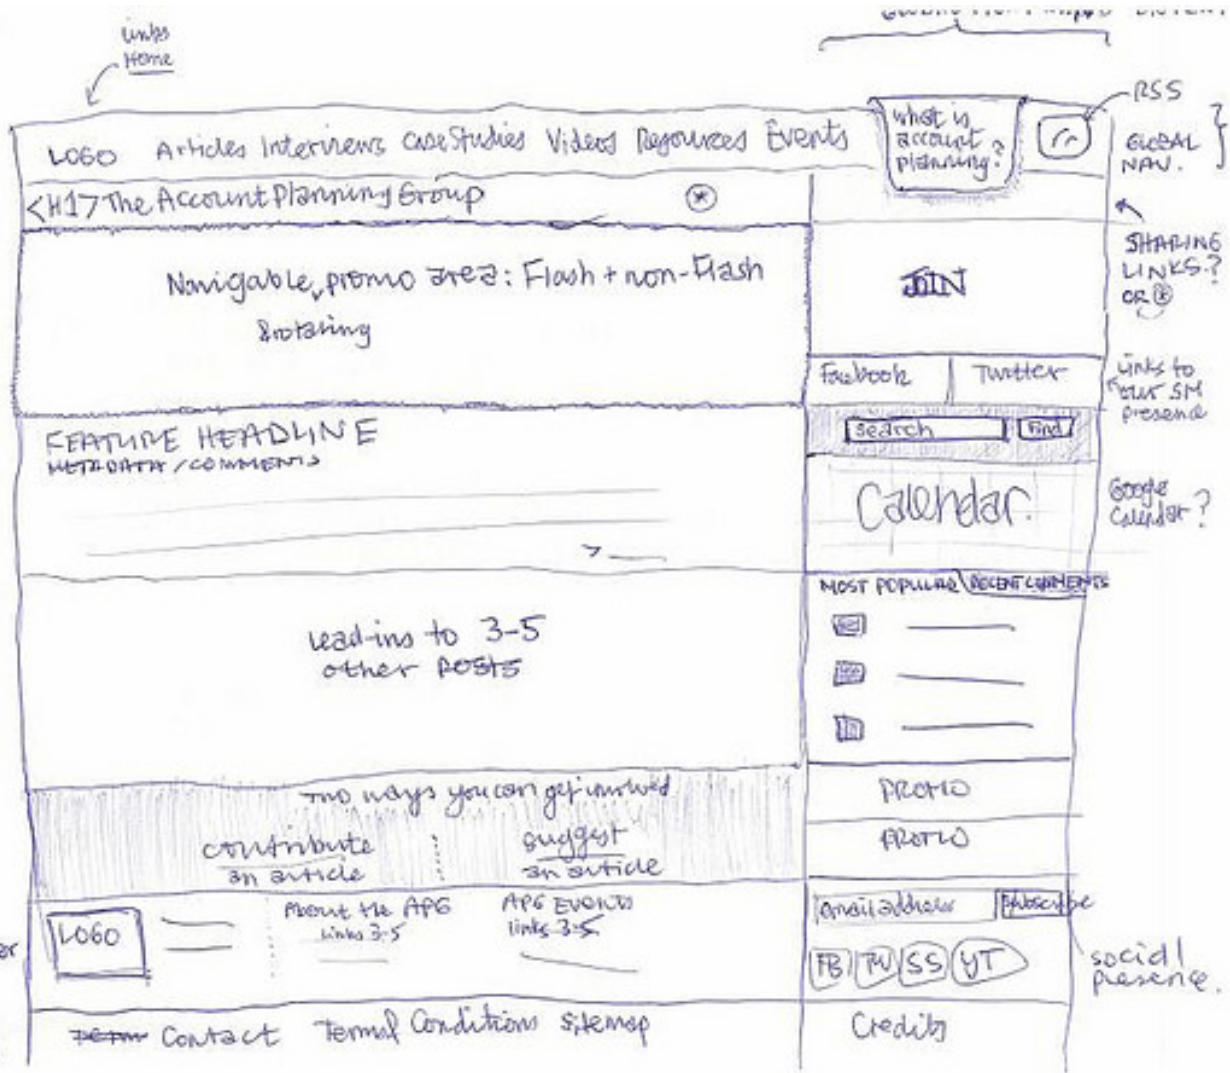 Links
Home
RSS
GLOBAL
NAV.
LOGO Articles Interviews Case Studies Videos Resources Events
what is
account
planning?
<H1> The Account Planning Group
SHARING
LINKS?
OR
Navigable, promo area: Flash + non-Flash
& rotating
JOIN
Facebook Twitter
Links to
our SM
presence
FEATURE HEADLINE
METADATA / COMMENTS
search Find
Calendar.
Google
Calendar?
MOST POPULAR RECENT COMMENTS
Lead-ins to 3-5
other posts
Two ways you can get involved
contribute
an article
suggest
an article
PROMO
PROMO
LOGO
About the APG
Links 3-5
APG EVENTS
links 3-5
email address Subscribe
FB TW SS YT
social
presence.
Contact Terms/Conditions Sitemap
Credits